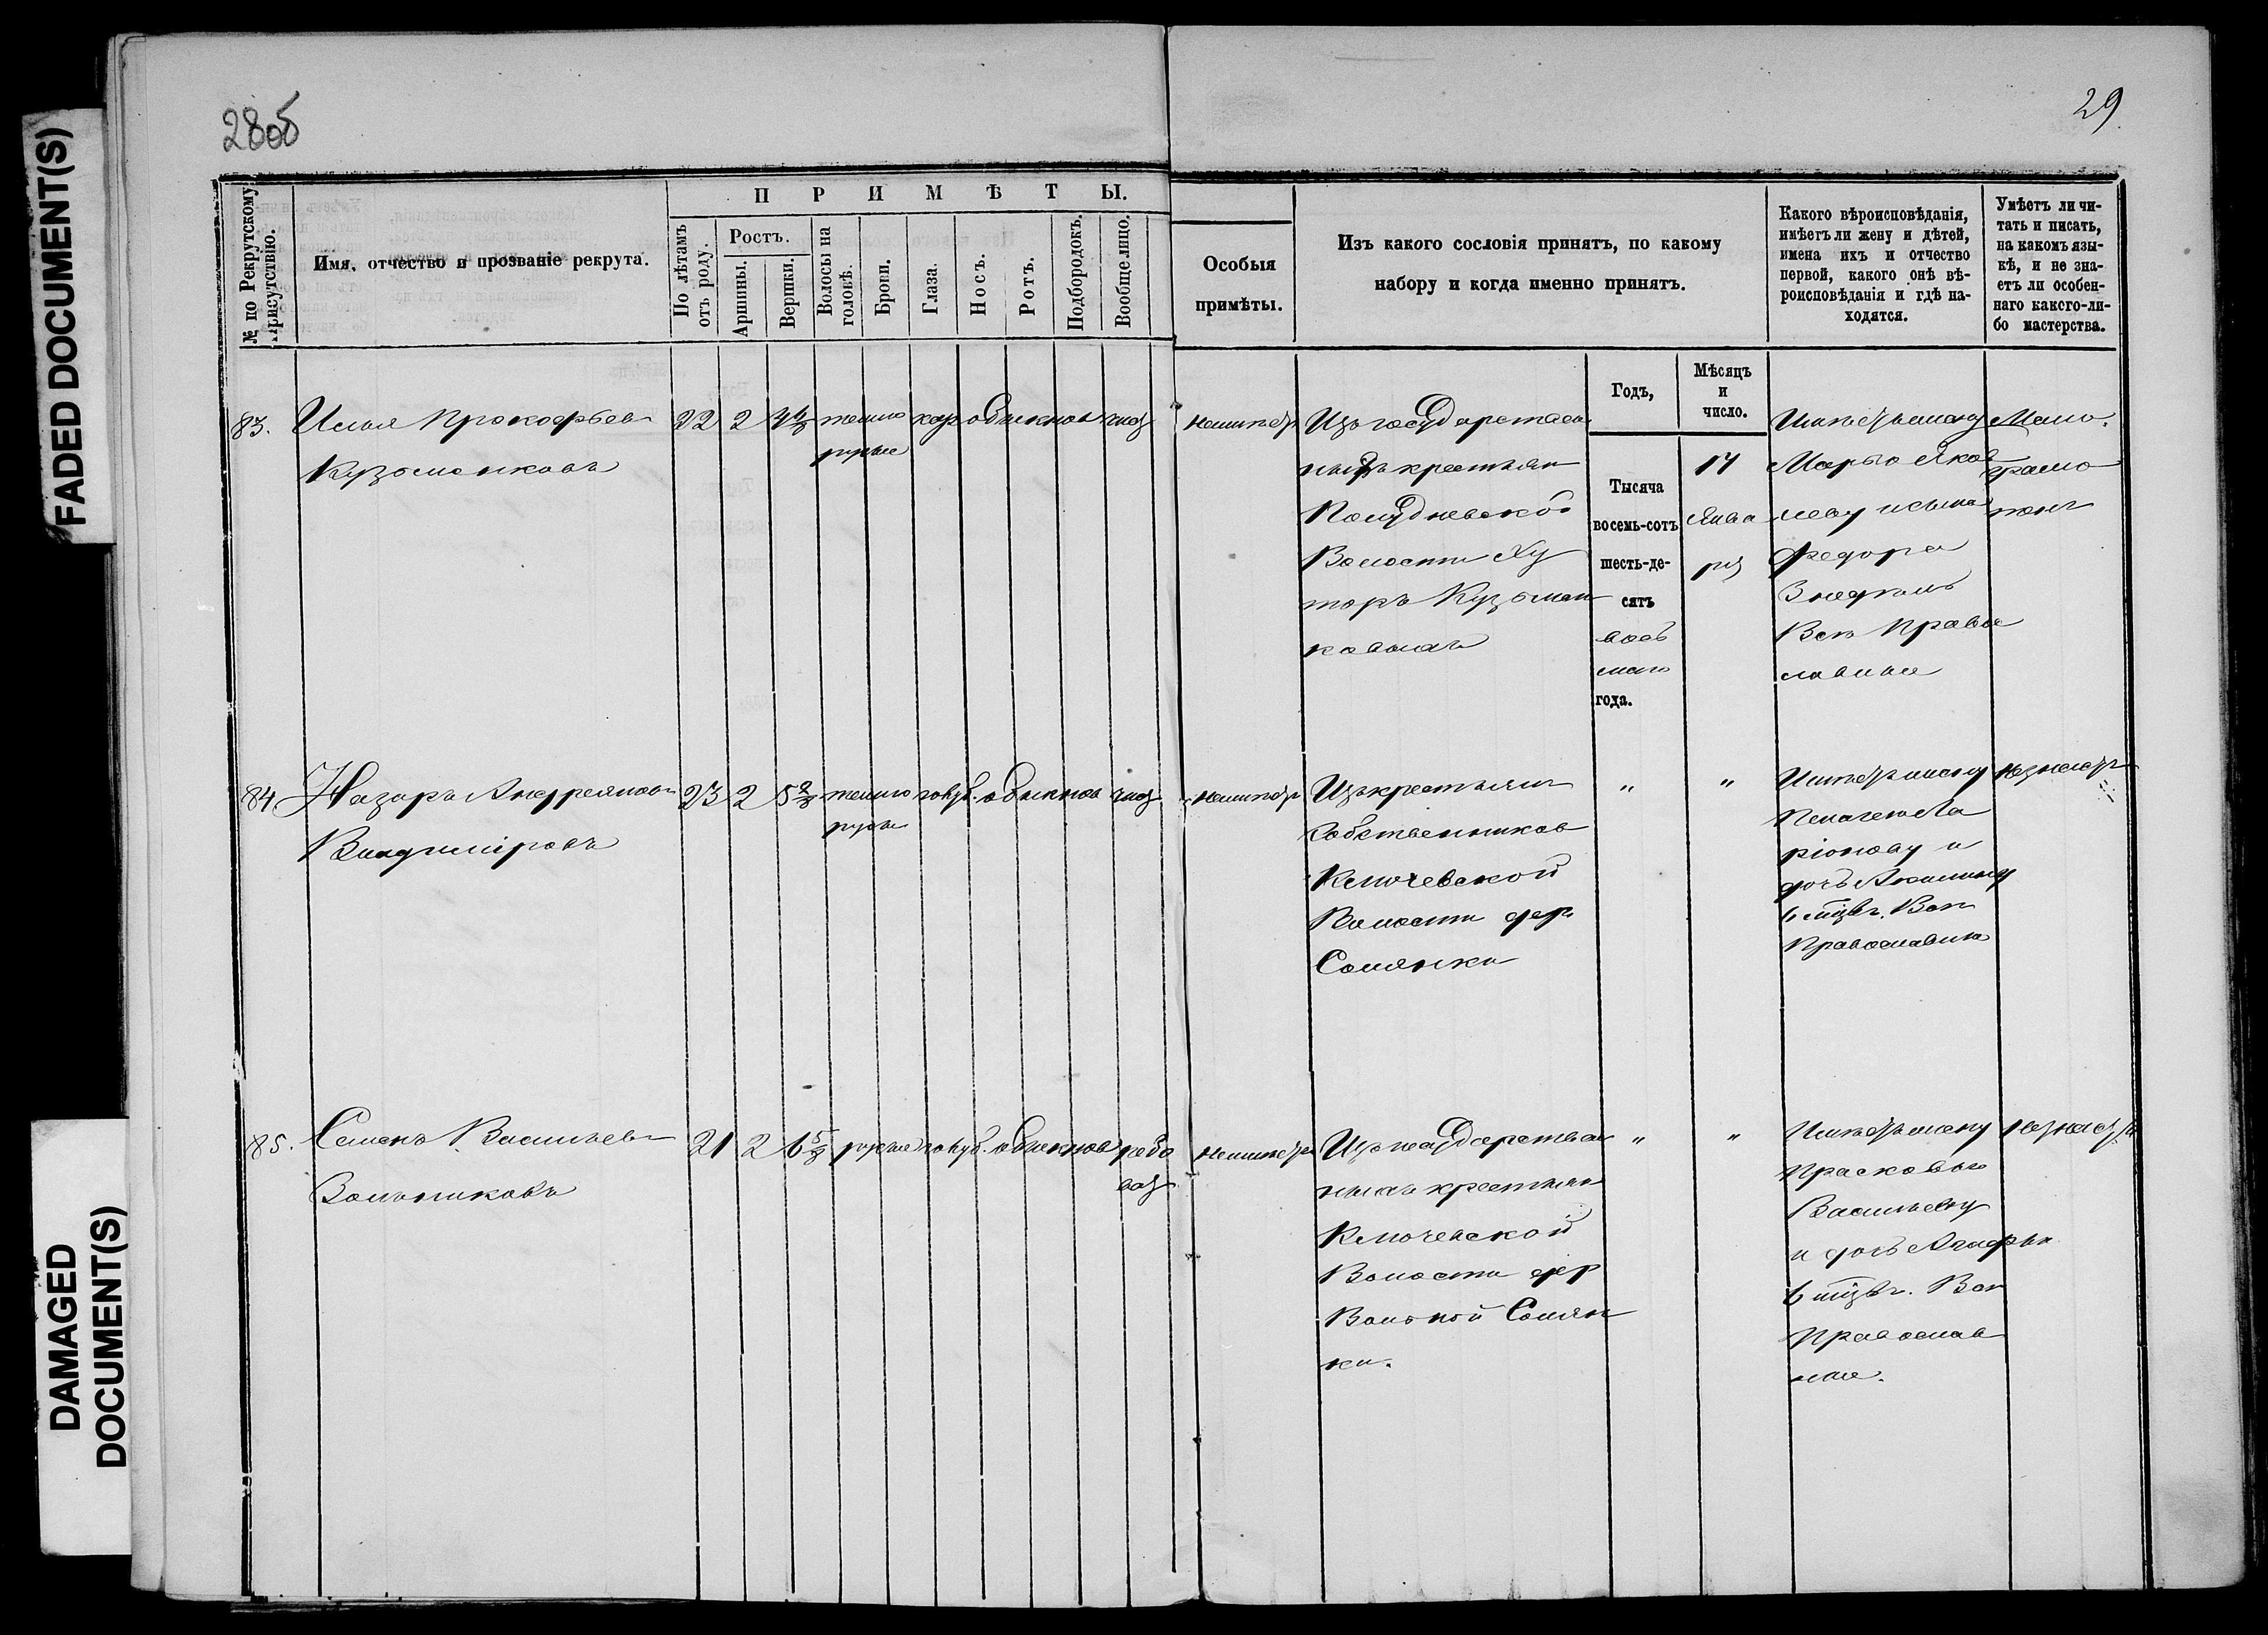 FADED DOCUMENT(S)
DAMAGED
DOCUMENT(S)
28об
29
№ по Рекрутскому присутствію.
Имя, отчество и прозваніе рекрута.
ПРИМѢТЫ.
По лѣтамъ отъ роду.
Ростъ.
Аршины.
Вершки.
Волосы на головѣ.
Брови.
Глаза.
Носъ.
Ротъ.
Подбородокъ.
Вообще лицо.
Особыя
примѣты.
Изъ какого сословія принятъ, по какому
набору и когда именно принятъ.
Какого вѣроисповѣданія,
имѣетъ ли жену и дѣтей,
имена ихъ и отчество
первой, какого онѣ вѣ-
роисповѣданія и гдѣ на-
ходятся.
Умѣетъ ли чи-
тать и писать,
на какомъ язы-
кѣ, и не зна-
етъ ли особен-
наго какого-ли-
бо мастерства.
Годъ,
Мѣсяцъ
и
число.
83. Илья Прокофьев
Кузьменковъ
22 2 темно кар обыкнов чис
русые
неимѣет
Изъ государствен
ныхъ крестьян
Полудневской
Волости Ху
торъ Кузьмен
ковыхъ
Тысяча
восемь-сотъ
шесть-де-
сятъ
вось
маго
года.
17
Янва
ря
Имѣетъ жену
Марью Яков
леву и сына
Федора
3 недѣль
Всѣ Право
славные
Мало
грамо
тенъ
84. Назаръ Андреянов
Владиміровъ
23 2 5 2/8 темно голуб. обыкнов чис
русы
неимѣет
Изъ крестьян
Собственников
Ключевской
Волости дер.
Солянки
" "
Имѣетъ жену
Пелагею Ла
ріонову и
дочь Акилину
6 мѣсяц. Всѣ
Православны
незнает
85. Семенъ Васильев
Вольниковъ
21 2 6 5/8 русые голуб. обыкнов рябо
ват
неимѣет
Изъ государствен
ныхъ крестьян
Ключевской
Волости дер
Вольной Солян
ки.
" "
Имѣетъ жену
Прасковью
Васильеву
и дочь Агафью
6 мѣсяц. Всѣ
Православ
ные.
незнаетъ